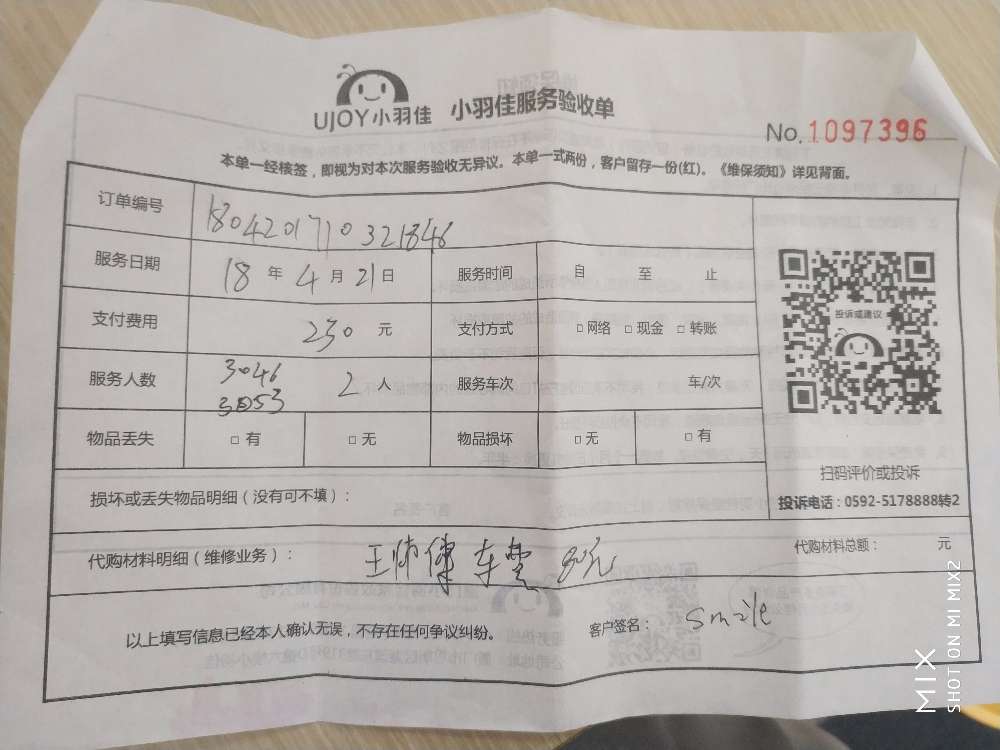 UJOY小羽佳 小羽佳服务验收单
No.1097396
本单一经核签，即视为对本次服务验收无异议。本单一式两份，客户留存一份(红)。《维保须知》详见背面。
订单编号 180420171 0321846
服务日期 18 年 4 月 21 日 服务时间 自 至 止
支付费用 230 元 支付方式 □ 网络 □ 现金 □ 转账
服务人数 3046 3053 2 人 服务车次 车/次
物品丢失 □ 有 □ 无 物品损坏 □ 无 □ 有
投诉或建议
扫码评价或投诉
投诉电话：0592-5178888转2
损坏或丢失物品明细（没有可不填）：
代购材料明细（维修业务）： 王师傅 车费 元 代购材料总额： 元
以上填写信息已经本人确认无误，不存在任何争议纠纷。 客户签名： smile
MIX
SHOT ON MI MIX2